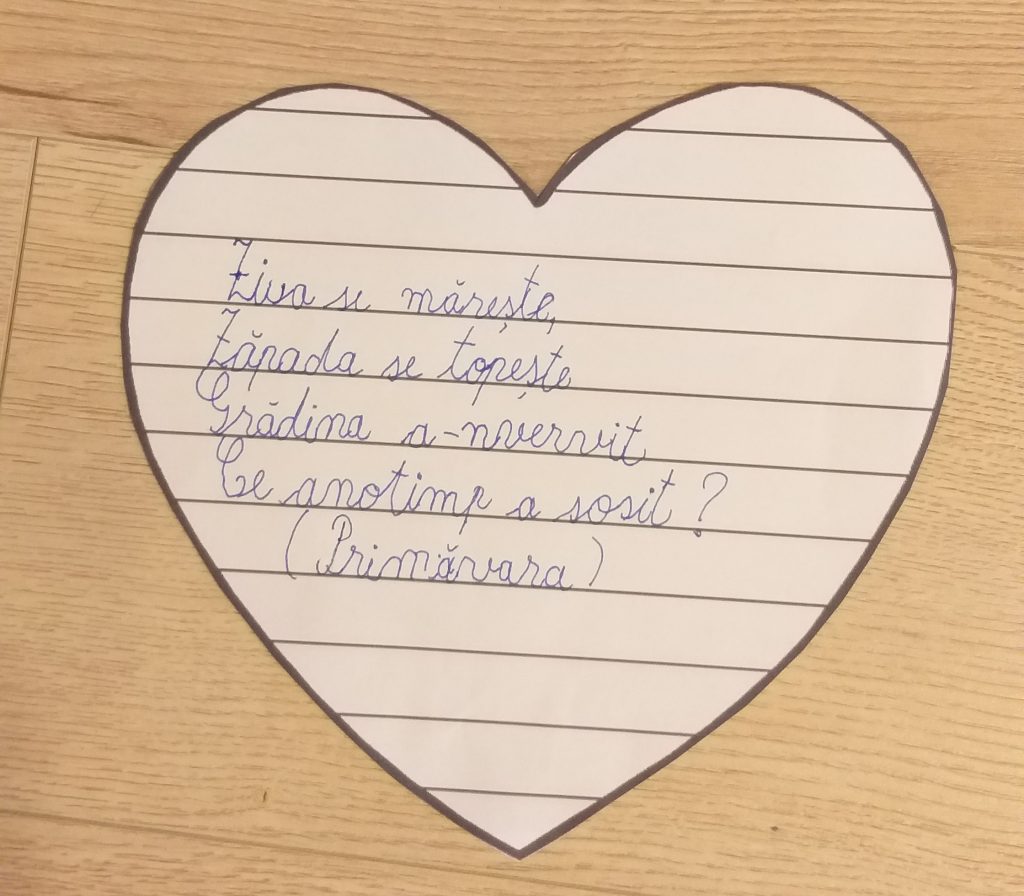 Ziua se mărește,
Zăpada se topește
Grădina a-nverzit
Ce anotimp a sosit?
(Primăvara)